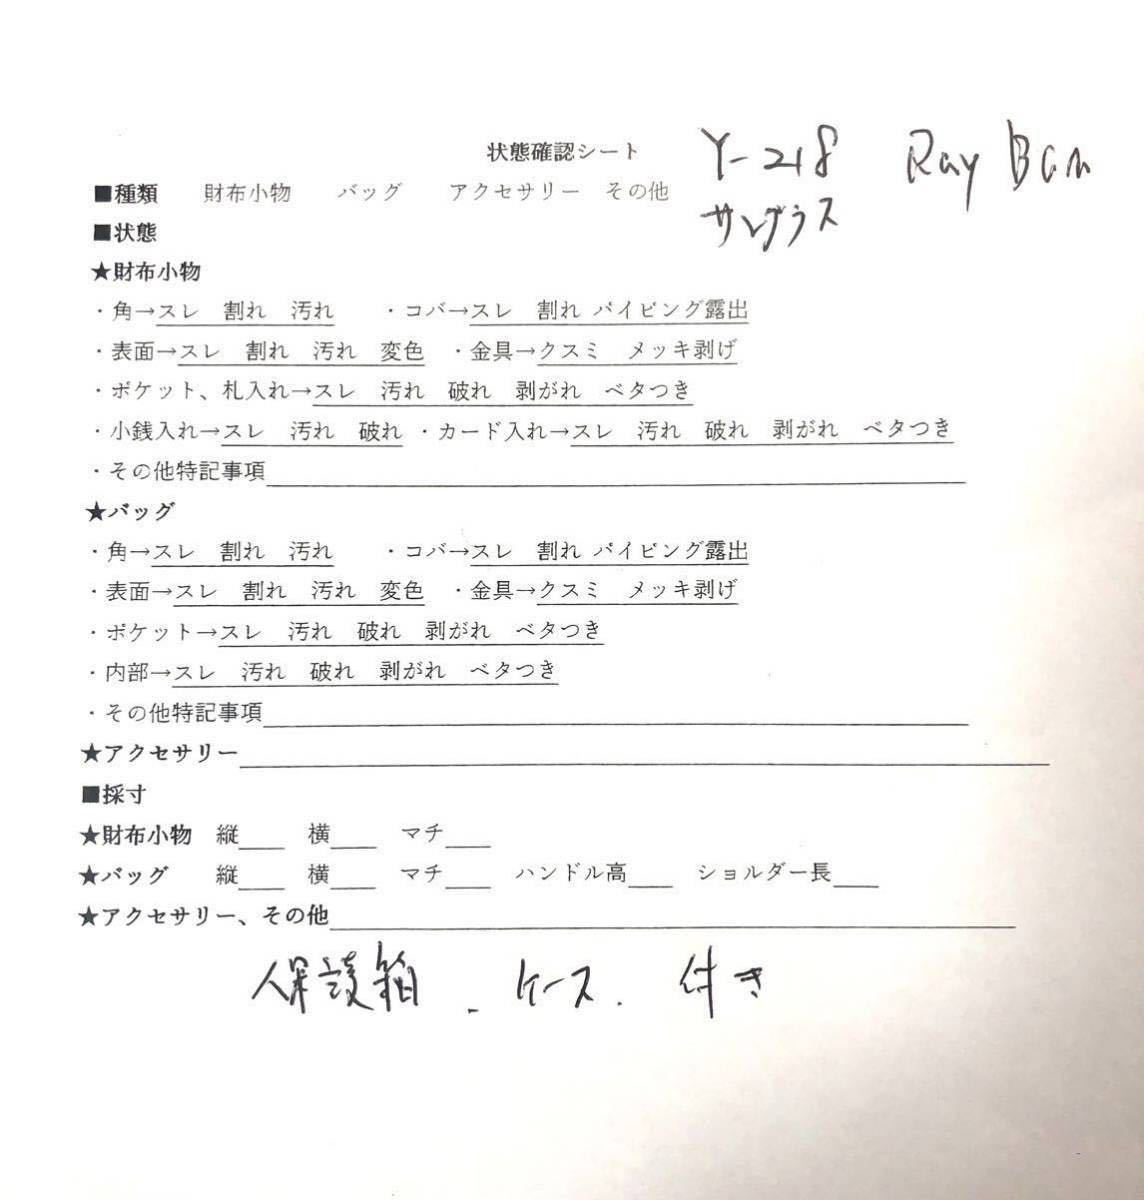 状態確認シート Y-218 Ray Ban
■種類 財布小物 バッグ アクセサリー その他
サングラス
■状態
★財布小物
・角→スレ 割れ 汚れ ・コバ→スレ 割れ パイピング露出
・表面→スレ 割れ 汚れ 変色 ・金具→クスミ メッキ剥げ
・ポケット、札入れ→スレ 汚れ 破れ 剥がれ ベタつき
・小銭入れ→スレ 汚れ 破れ ・カード入れ→スレ 汚れ 破れ 剥がれ ベタつき
・その他特記事項
★バッグ
・角→スレ 割れ 汚れ ・コバ→スレ 割れ パイピング露出
・表面→スレ 割れ 汚れ 変色 ・金具→クスミ メッキ剥げ
・ポケット→スレ 汚れ 破れ 剥がれ ベタつき
・内部→スレ 汚れ 破れ 剥がれ ベタつき
・その他特記事項
★アクセサリー
■採寸
★財布小物 縦 横 マチ
★バッグ 縦 横 マチ ハンドル高 ショルダー長
★アクセサリー、その他
保護箱、ケース、付き